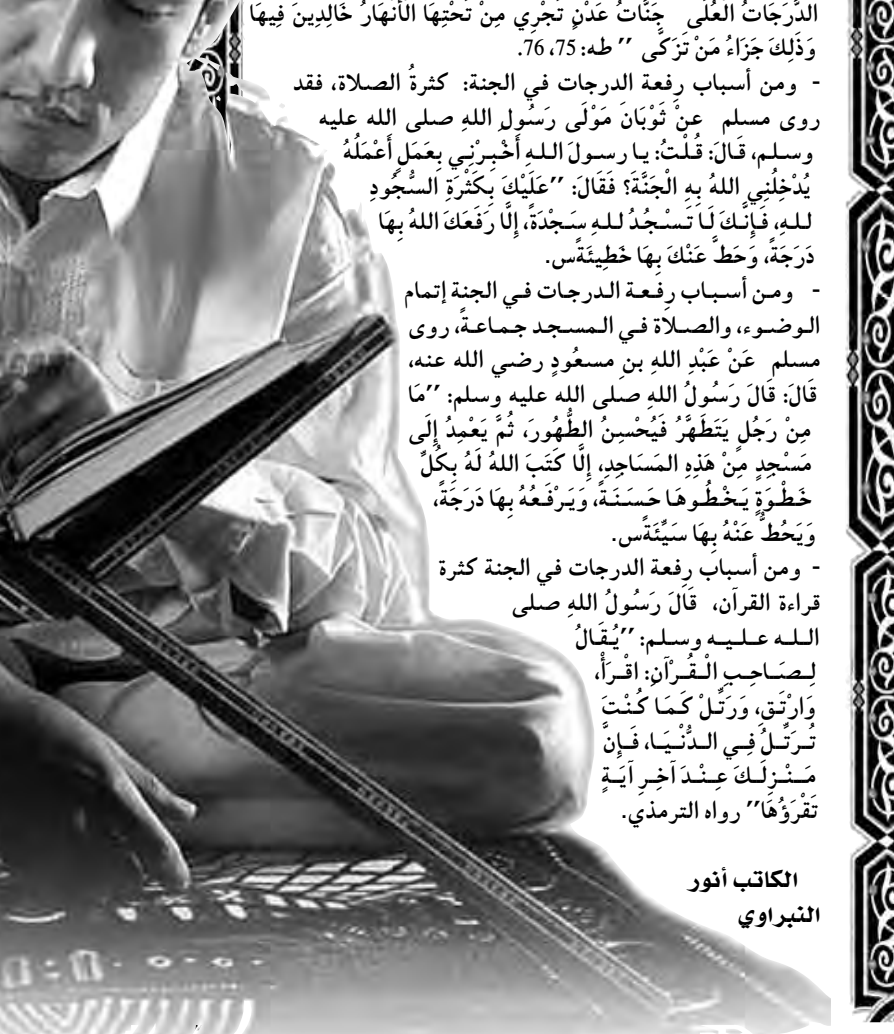 الدَّرَجَاتُ الْعُلَى جَنَّاتُ عَدْنٍ تَجْرِي مِنْ تَحْتِهَا الْأَنْهَارُ خَالِدِينَ فِيهَا
وَذَلِكَ جَزَاءُ مَنْ تَزَكَّى ’’ طه: 75، 76.
- ومن أسباب رفعة الدرجات في الجنة: كثرةُ الصلاة، فقد
روى مسلم عنْ ثَوْبَانَ مَوْلَى رَسُولِ اللهِ صلى الله عليه
وسلم، قَالَ: قُلْتُ: يا رسولَ اللهِ أَخْبِرْنِي بِعَمَلٍ أَعْمَلُهُ
يُدْخِلُنِي اللهُ بِهِ الْجَنَّةَ؟ فَقَالَ: ’’عَلَيْكَ بِكَثْرَةِ السُّجُودِ
للهِ، فَإِنَّكَ لَا تَسْجُدُ للهِ سَجْدَةً، إِلَّا رَفَعَكَ اللهُ بِهَا
دَرَجَةً، وَحَطَّ عَنْكَ بِهَا خَطِيئَةًس.
- ومن أسباب رِفعة الدرجات في الجنة إتمام
الوضوء، والصلاة في المسجد جماعةً، روى
مسلم عَنْ عَبْدِ اللهِ بنِ مسعُودٍ رضي الله عنه،
قَالَ: قَالَ رَسُولُ اللهِ صلى الله عليه وسلم: ’’مَا
مِنْ رَجُلٍ يَتَطَهَّرُ فَيُحْسِنُ الطُّهُورَ، ثُمَّ يَعْمِدُ إِلَى
مَسْجِدٍ مِنْ هَذِهِ المَسَاجِدِ، إِلَّا كَتَبَ اللهُ لَهُ بِكُلِّ
خَطْوَةٍ يَخْطُوهَا حَسَنَةً، وَيَرْفَعُهُ بِهَا دَرَجَةً،
وَيَحُطُّ عَنْهُ بِهَا سَيِّئَةًس.
- ومن أسباب رِفعة الدرجات في الجنة كثرة
قراءة القرآن، قَالَ رَسُولُ اللهِ صلى
الله عليه وسلم: ’’يُقَالُ
لِصَاحِبِ الْقُرْآنِ: اقْرَأْ،
وَارْتَقِ، وَرَتِّلْ كَمَا كُنْتَ
تُرَتِّلُ فِي الدُّنْيَا، فَإِنَّ
مَنْزِلَكَ عِنْدَ آخِرِ آيَةٍ
تَقْرَؤُهَا’’ رواه الترمذي.
الكاتب أنور
النبراوي